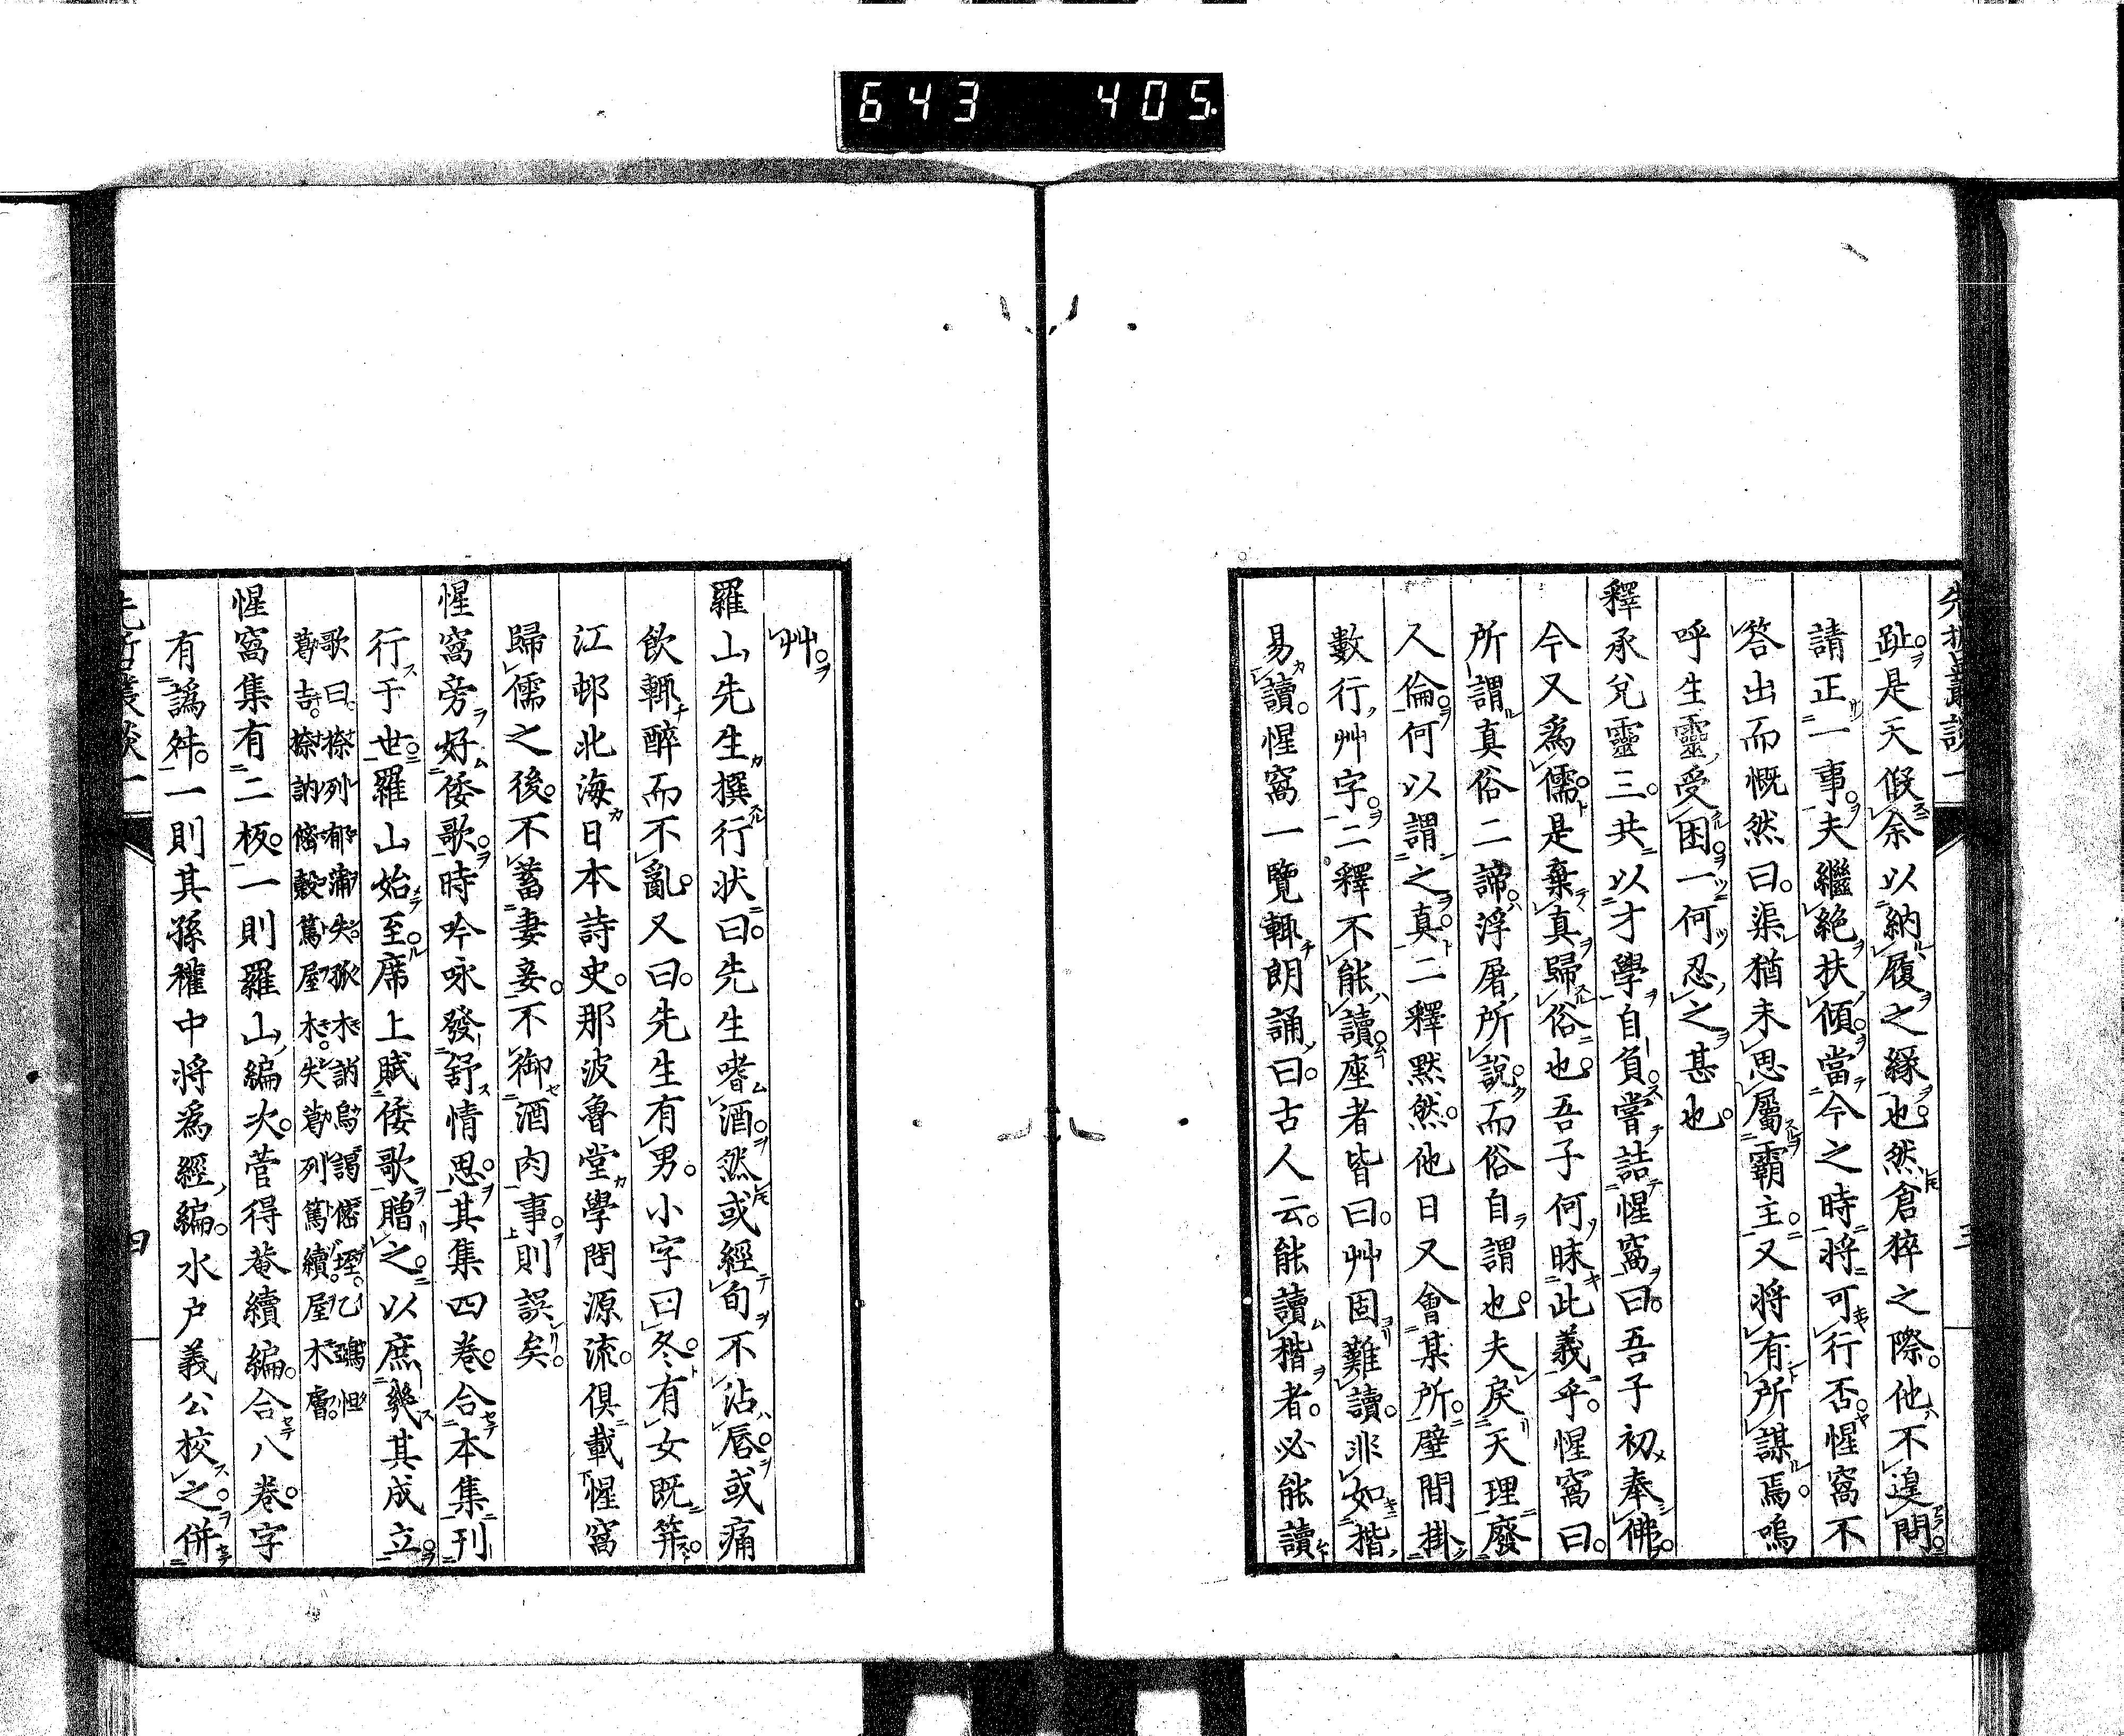 643 405
趾是天假余以納履之緣也然倉猝之際他不遑問
請正一事夫繼絕扶傾當今之時將可行否惺窩不
答出而慨然曰渠猶未思屬霸主又將有所謀焉嗚
呼生靈受困一何忍之甚也
釋承兌靈三共以才學自負嘗詰惺窩曰吾子初奉佛
今又爲儒是棄真歸俗也吾子何昧此義乎惺窩曰
所謂真俗二諦浮屠所說而俗自謂也夫戾天理廢
人倫何以謂之真二釋默然他日又會某所壁間掛
數行艸字二釋不能讀座者皆曰艸固難讀非如楷
易讀惺窩一覽輒朗誦曰古人云能讀楷者必能讀
艸
羅山先生撰行狀曰先生嗜酒然或經旬不沾唇或痛
飲輒醉而不亂又曰先生有男小字曰冬有女既笄
江邨北海日本詩史那波魯堂學問源流俱載惺窩
歸儒之後不蓄妻妾不御酒肉事則誤矣
惺窩旁好倭歌時吟咏發舒情思其集四卷合本集刊
行于世羅山始至席上賦倭歌贈之以庶幾其成立
歌曰捺列郁蒲失孤木訥烏謁倍埊乙鵶怛
葛吉捺訥倍穀篤屋木失葛列篤續屋木膺
惺窩集有二板一則羅山編次菅得菴續編合八卷字
有譌舛一則其孫權中將爲經編水戶義公校之併